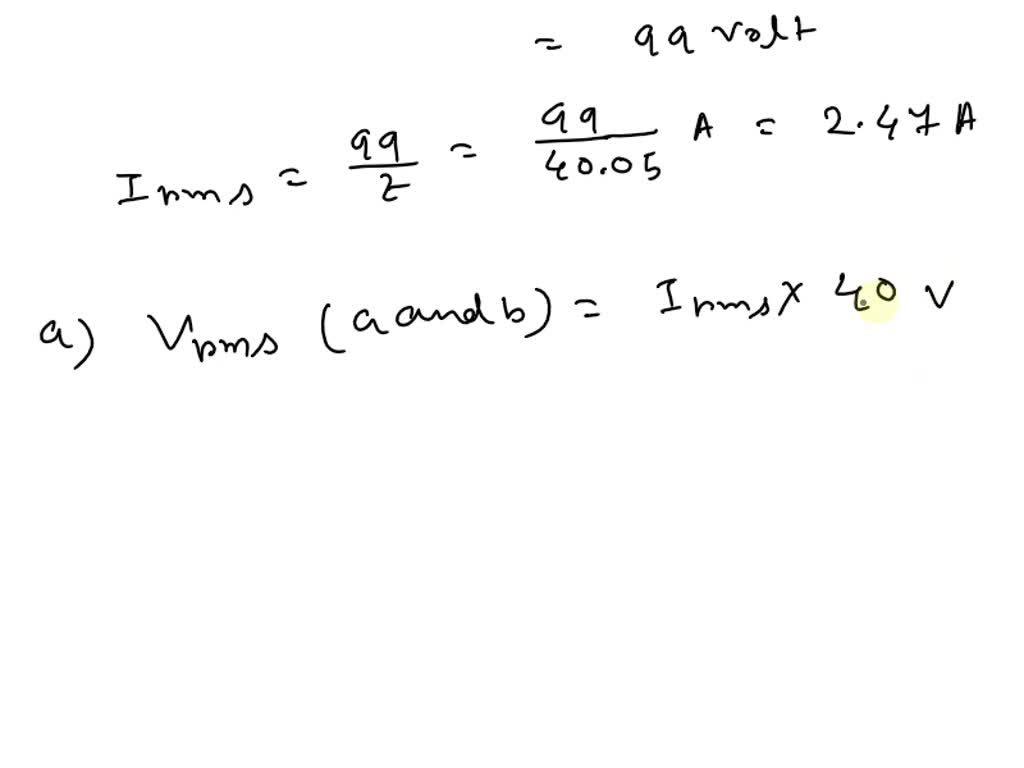 = 99 volt
I rms = 99/Z = 99/40.05 A = 2.47 A
a) Vrms (a and b) = I rms x 40 V